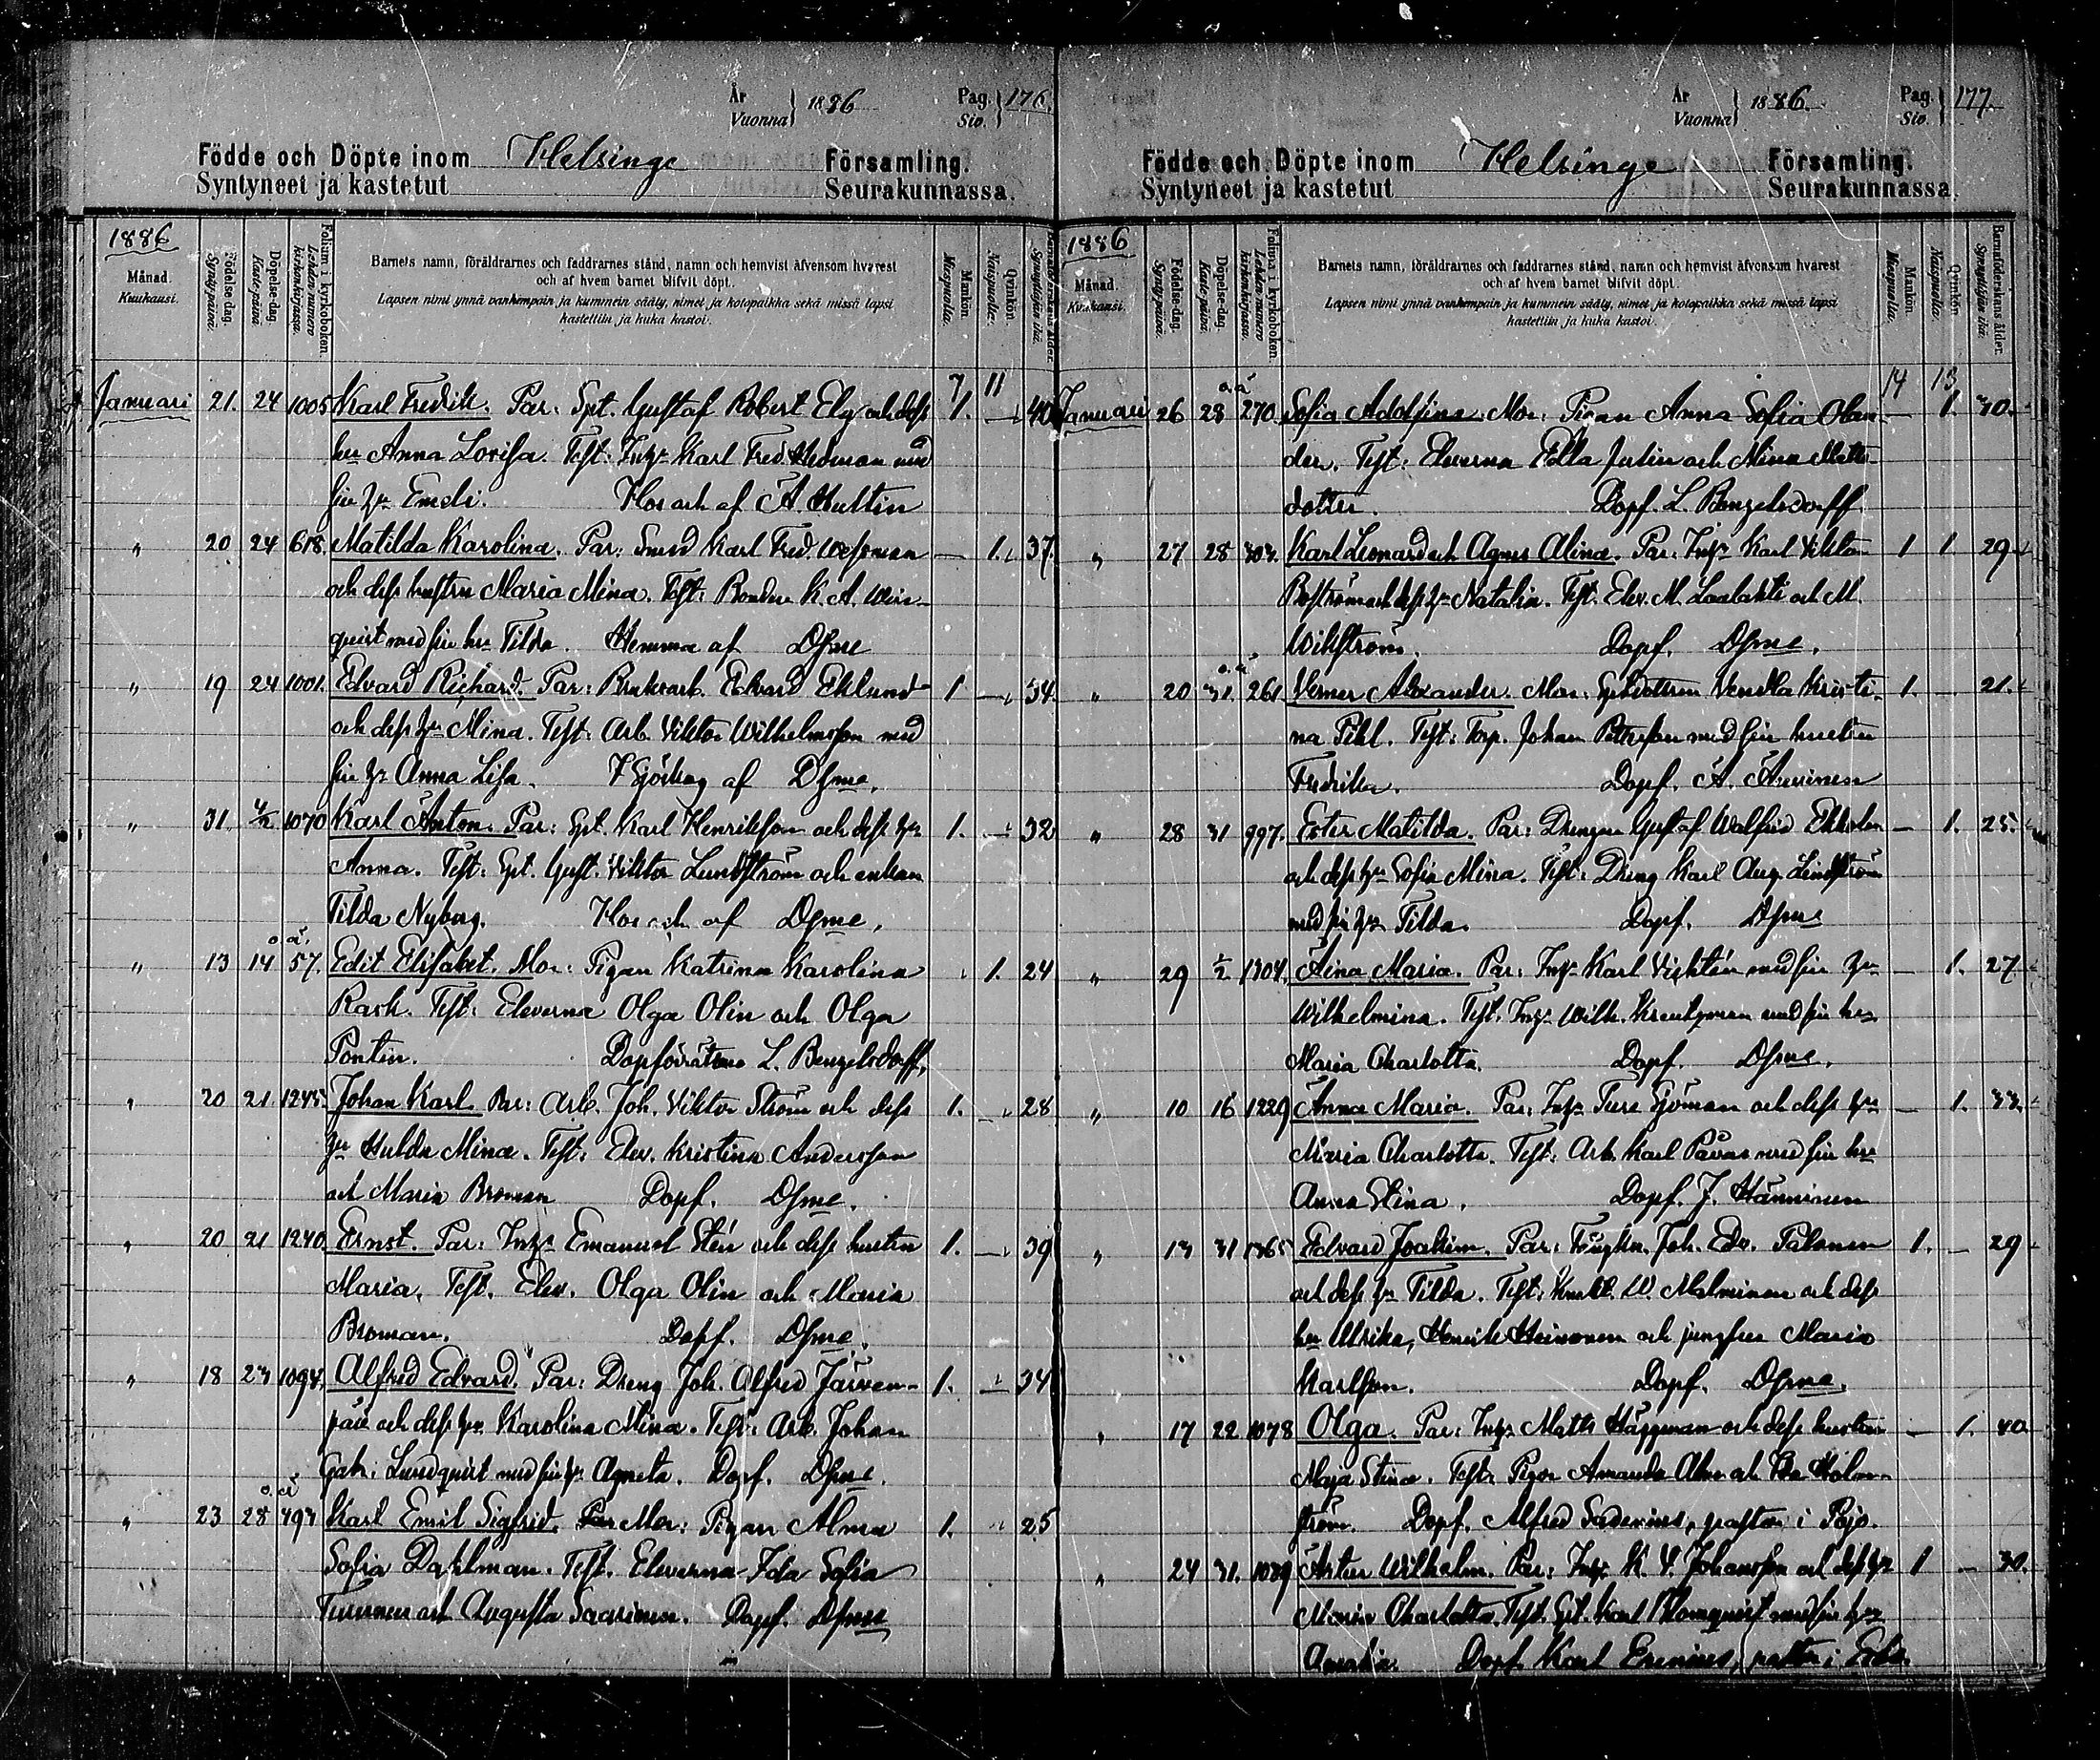 År
Vuonna } 1886
Pag.
Siv. } 176
Födde och Döpte inom Helsinge Församling.
Syntyneet ja kastetut Seurakunnassa.
1886
Månad.
Kuukausi.
Födelse-dag.
Syntypäivä.
Döpelse-dag.
Kaste-päivä.
Folium i kyrkoboken.
Lehden numero kirkonkirjassa.
Barnets namn, föräldrarnes och faddrarnes stånd, namn och hemvist äfvensom hvarest
och af hvem barnet blifvit döpt.
Lapsen nimi ynnä vanhempain ja kummein sääty, nimet ja kotopaikka sekä missä lapsi
kastettiin ja kuka kastoi.
Mankön.
Miespuolia.
Qvinkön.
Naispuolia.
Synnyttäjän ikä.
7 11
Januari 21. 24 1005 Karl Fredrik. Par: Spt. Gustaf Robert Elg och dess 1. — 40
hu Anna Lovisa. Test: Inhs Karl Fred. Hedman med
sin hu Emeli. Hos och af A. Hultin
" 20 24 618. Matilda Karolina. Par: Smed Karl Fred. Wessman — 1. 37.
och dess hustru Maria Mina. Test: Bonden K. A. Win-
quist med sin hu Tilda. Hemma af Dsme
" 19 24 1001. Edvard Richard. Par: Bruksarb. Edvard Eklund 1 — 34.
och dess hu Mina. Test: Arb. Viktor Wilhelmsson med
sin hu Anna Lisa. af Dsme.
" 31. 4/2 1070 Karl Anton. Par: Spt. Karl Henriksson och dess hu 1. — 32
Anna. Test: Spt. Gust. Viktor Lundström och enkan
Tilda Nyberg. Hos och af Dsme.
o. ä.
" 13 14 57. Edit Elisabet. Mor: Pigan Katrina Karolina 1. 24
Rask. Test: Eleverna Olga Olin och Olga
Pontin. Dopförrättare L. Bengelsdorff.
" 20 21 1245 Johan Karl. Par: Arb. Joh. Viktor Ström och dess 1. 28
hu Hulda Mina. Test: Elev. Kristina Andersson
och Maria Broman Dopf. Dsme.
" 20 21 1240 Ernst. Par: Inhs Emanuel Stén och dess hustru 1. — 39
Maria. Test. Elev. Olga Olin och Maria
Broman. Dopf. Dsme.
" 18 23 1094. Alfred Edvard. Par: Dreng Joh. Alfred Järven- 1. — 34
pää och dess hu Karolina Mina. Test: Arb. Johan
Gabr. Lundquist med sin hu Agneta. Dopf. Dsme.
o. ä
" 23 28 493 Karl Emil Sigfrid. Par Mor: Pigan Alma 1. 25
Sofia Dahlman. Test. Eleverna Ida Sofia
Turunen och Augusta Saarinen. Dopf. Dsme
År
Vuonna } 1886.
Pag.
Siv. } 177.
Födde och Döpte inom Helsinge Församling.
Syntyneet ja kastetut Seurakunnassa.
1886
Månad.
Kuukausi.
Födelse-dag.
Syntypäivä.
Döpelse-dag.
Kaste-päivä.
Folium i kyrkoboken.
Lehden numero kirkonkirjassa.
Barnets namn, föräldrarnes och faddrarnes stånd, namn och hemvist äfvensom hvarest
och af hvem barnet blifvit döpt.
Lapsen nimi ynnä vanhempain ja kummein sääty, nimet ja kotopaikka sekä missä lapsi
kastettiin ja kuka kastoi.
Mankön.
Miespuolia.
Qvinkön.
Naispuolia.
Barnaföderskans ålder.
Synnyttäjän ikä.
14 13
o. ä
Januari 26 28 270. Sofia Adolfina. Mor: Pigan Anna Sofia Olan- — 1. 30.
der. Test: Eleverna Edla Julin och Mina Matts-
dotter. Dopf. L. Bengelsdorff.
" 27 28 303. Karl Leonard och Agnes Alina. Par: Inhs Karl Viktor 1 1 29
Boström och dess hu Natalia. Test: Elev. M. Laalahti och M.
Wikström. Dopf. Dsme.
o. ä
" 20 31. 261 Verner Alexander. Mor: Sptdottren Vendla Kristi- 1. — 21.
na Pihl. Test: Torp. Johan Pettersson med sin hustru
Fredrika. Dopf. A. Auvinen
" 28 31 997. Ester Matilda. Par: Drengen Gustaf Walfrid Ekholm — 1. 25.
och dess hu Sofia Mina. Test: Dreng Karl Aug. Lindström
med sin hu Tilda. Dopf. Dsme
" 29 1/2 1304. Aina Maria. Par: Inhs Karl Vichtén med sin hu — 1. 27
Wilhelmina. Test: Inhs Wilh. Kreutzman med sin hu
Maria Charlotta. Dopf. Dsme.
" 10 16 1229 Anna Maria. Par: Inhs Ture Sjöman och dess hu — 1. 33.
Maria Charlotta. Test: Arb. Karl Påvas med sin hu
Anna Stina. Dopf. J. Hänninen
" 13 31 1365 Edvard Joakim. Par: Joh. Edv. Palonen 1. — 29
och dess hu Tilda. Test: W. Malminen och dess
hu Ulrika, Henrik Heinonen och jungfru Maria
Karlsson. Dopf. Dsme.
" 17 22 1078 Olga. Par: Inhs Matts Häggman och dess hustru — 1. 40
Maja Stina. Test: Pigor Amanda Alm och Ida Holm-
ström. Dopf. Alfred Sadenius, pastor i Pojo.
" 24 31. 1089 Artur Wilhelm. Par: Inhs K. V. Johansson och dess hu 1 — 30.
Maria Charlotta. Test. Spt. Karl Blomquist med sin hu
Amalia. Dopf. Karl Erenius, pastor i Esbo.